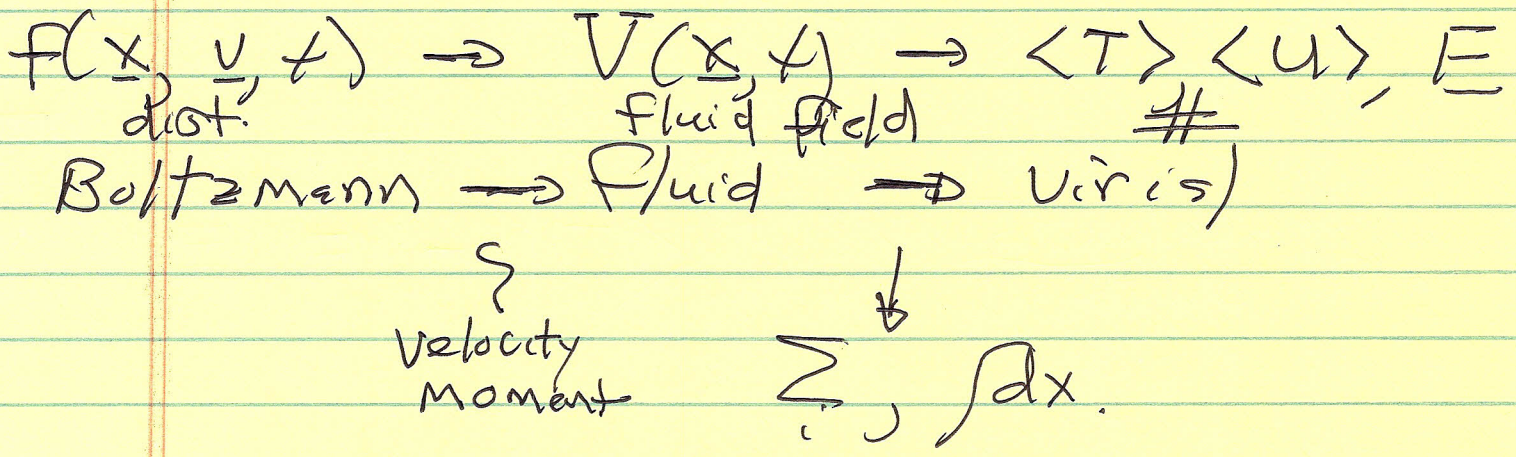 f(x, v, t) → V(x, t) → <T> <U>, E
dist. fluid field #
Boltzmann → Fluid → Virial
velocity
moment
Σ i, ∫dx.